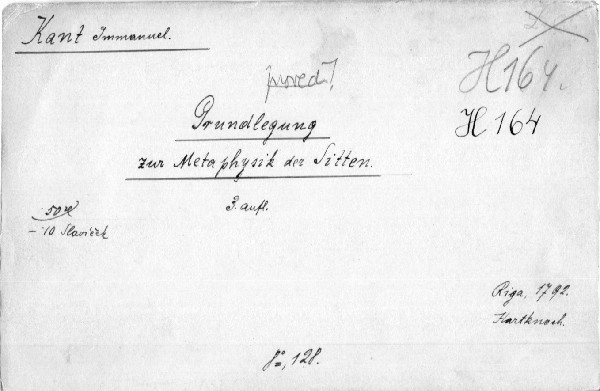 Kant Immanuel.
H 164.
proved!
Grundlegung
H 164
zur Metaphysik der Sitten.
3. aufl.
50
– 10 Slavíček
Riga, 1792.
Hartknoch.
8°, 128.